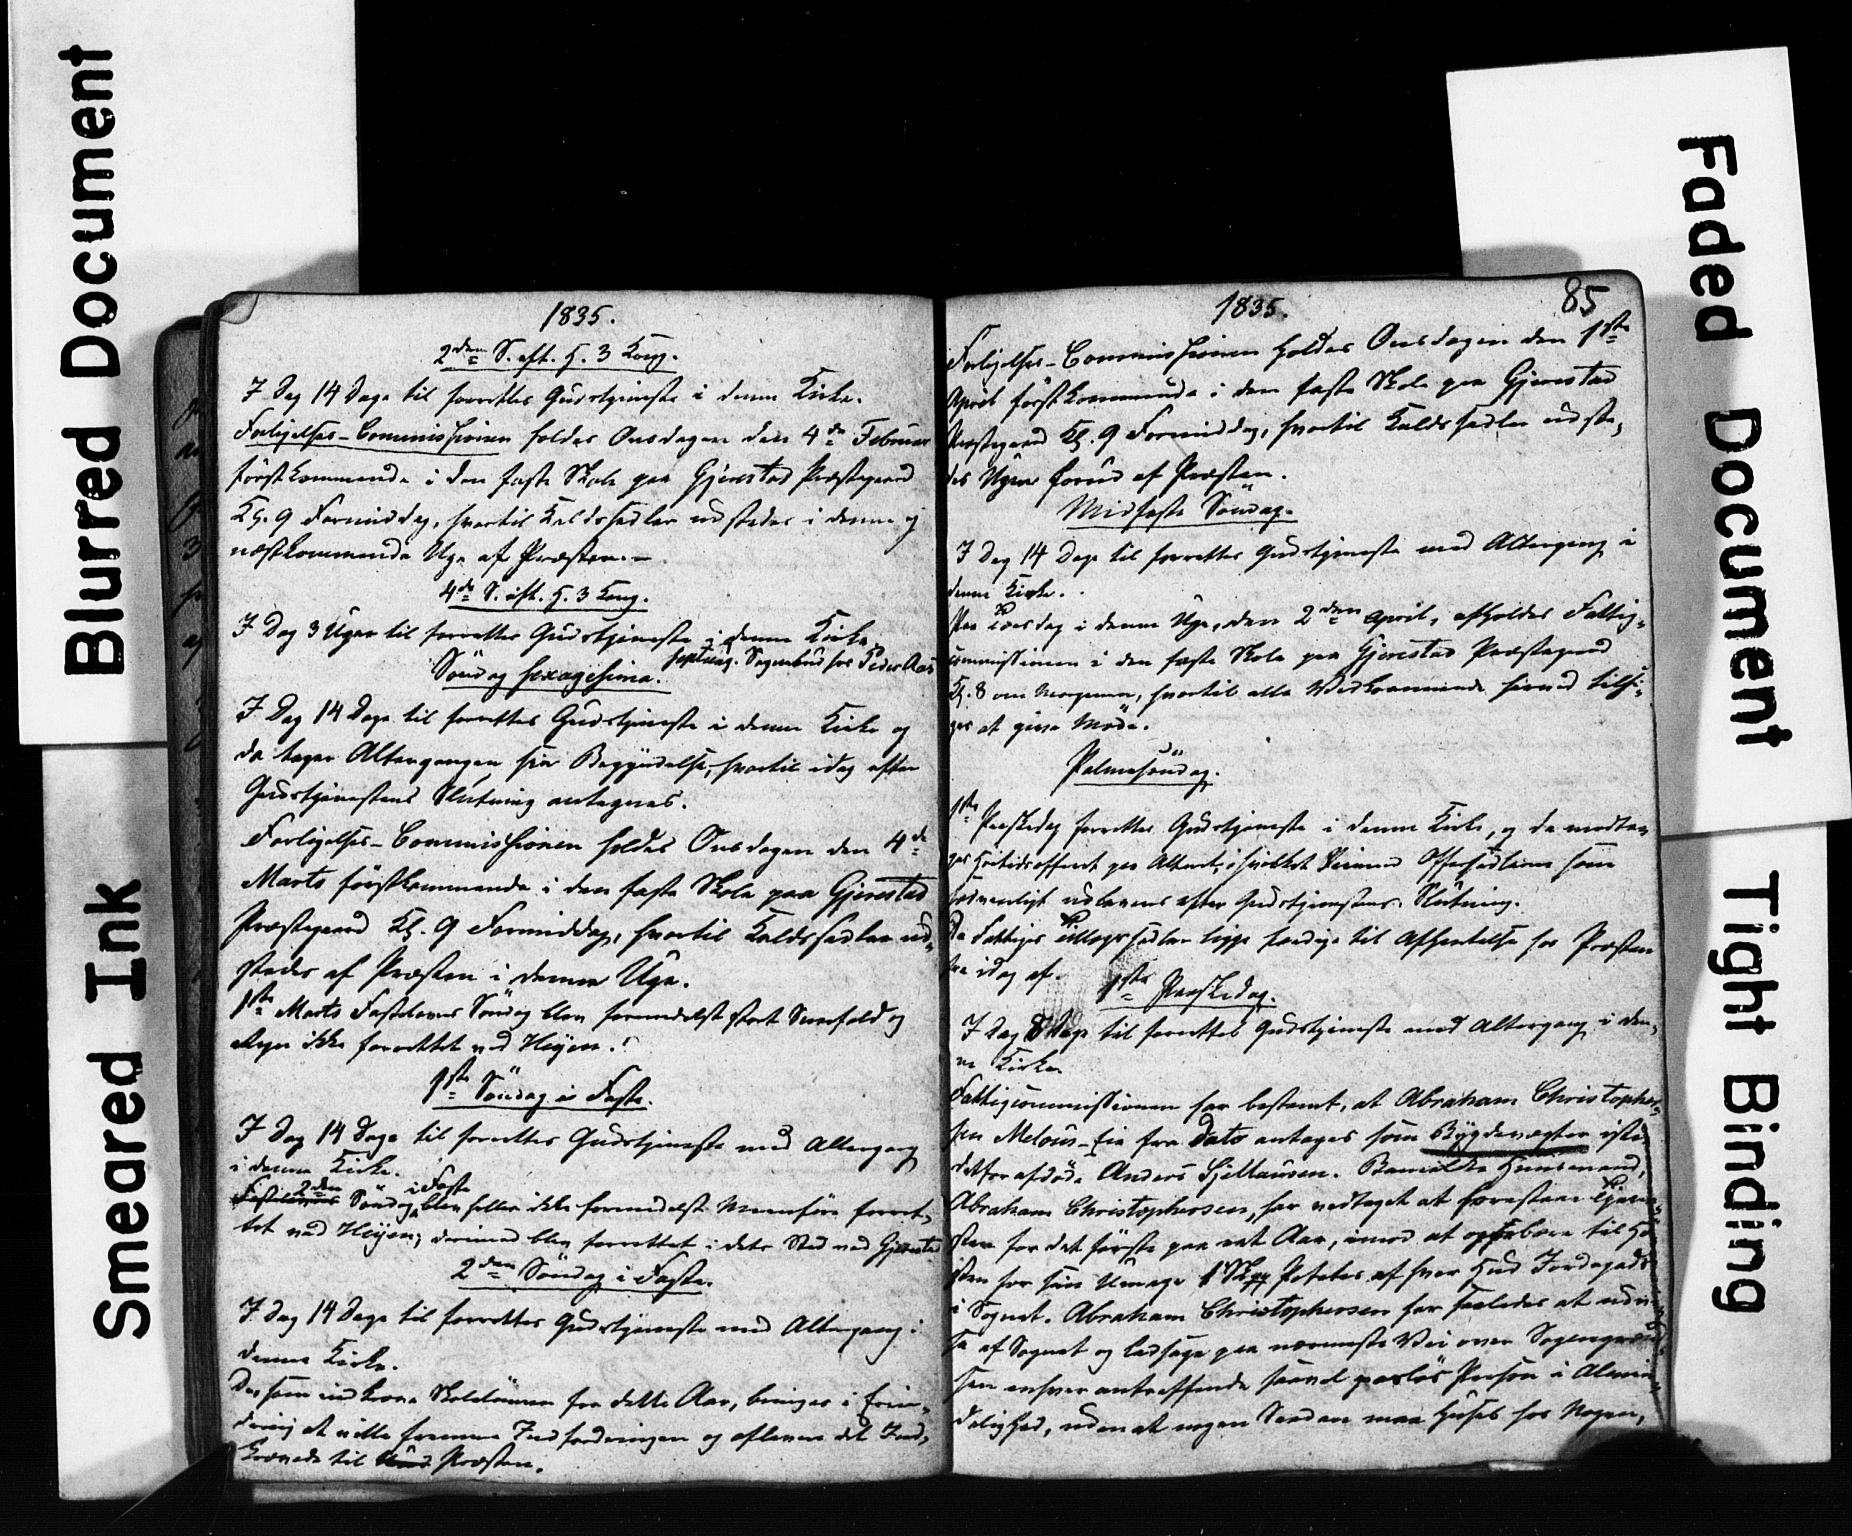 Blurred Document
Smeared Ink
1835.
2den S. eft. H. 3 Kong.
I Dag 14 Dage til forrettes Gudstjeneste i denne Kirke.
Forligelses-Commissionen holdes Onsdagen den 4de Februar
førstkommende i den faste Skole paa Gjerestad Præstegaard
Kl. 9 Formiddag, hvortil Kaldssedler udstedes i denne og
næstkommende Uge af Præsten.-
4de S. eft. H. 3 Kong.
I Dag 3 Uger til forrettes Gudstjeneste i denne Kirke.
Septuag. Sognebud hos Peder Aas
Søndag Sexagesima.
I Dag 14 Dage til forrettes Gudstjeneste i denne Kirke og
da tager Altergangen sin Begyndelse, hvortil idag efter
Gudstjenestens Slutning antegnes.
Forligelses-Commissionen holdes Onsdagen den 4de
Marts førstkommende i den faste Skole paa Gjerestad
Præstegaard Kl. 9 Formiddag, hvortil Kaldssedler ud-
stedes af Præsten i denne Uge.
1ste Marts Fastelavns Søndag blev formedelst stort Sneefald og
ikke forrettet ved Heyen.
1ste Søndag i Faste.
I Dag 14 Dage til forrettes Gudstjeneste med Altergang
i denne Kirke.
2den Søndag i Faste blev heller ikke formedelst Meenføre forret-
tet ved Heyen, derimod blev forrettet i dets Sted ved Gjerestad
2den Søndag i Faste.
I Dag 14 Dage til forrettes Gudstjeneste med Altergang i
denne Kirke.
De som indkræve Skolelønnen for dette Aar, bringes i Erin-
dring at ville fremme Indfordringen og aflevere det Ind-
krævede til Præsten.
1835.
85
Forligelses-Commissionen holdes Onsdagen den 1ste
April førstkommende i den faste Skole paa Gjerestad
Præstegaard Kl. 9 Formiddag, hvortil Kaldssedler udste-
des Ugen forud af Præsten.
Midfaste Søndag.
I Dag 14 Dage til forrettes Gudstjeneste med Altergang i
denne Kirke.
Paa Torsdag i denne Uge, den 2den April, afholdes Fattig-
commissionen i den faste Skole paa Gjerestad Præstegaard
Kl. 8 om Morgenen, hvortil alle Vedkommende herved tilsi-
ges at give Møde.
Palmesøndag.
1ste Paaskedag forrettes Gudstjeneste i denne Kirke, og da modta-
ges Høitidsofferet paa Alteret, i hvilket Offersedlerne som
sædvanligt udleveres efter Gudstjenestens Slutning.
De Fattiges Tillægssedler ligge færdige til Afhentelse hos Præsten
fra idag af.
1ste Paaskedag.
I Dag 8 Dage til forrettes Gudstjeneste med Altergang i den-
ne Kirke.
Fattigcommissionen har bestemt, at Abraham Christopher-
sen Melaas-Eie fra Dato antages som Bygdevægter iste-
detfor afdøde Anders Huusmand,
Abraham Christophersen, har vedtaget at forestaae Tjene-
sten for det første paa eet Aar, imod at oppebære til Hø-
sten for sin Umage 1 Skp Poteter af hver Hud Jordegods
i Sognet. Abraham Christophersen har saaledes at udvi-
se af Sognet og ledsage paa nærmeste Vei over Sognegrænd-
sen enhver antreffende saavel pasløs Person i Almin-
delighed, uden at nogen Saadan maa huses hos Nogen,
Faded Document
Tight Binding